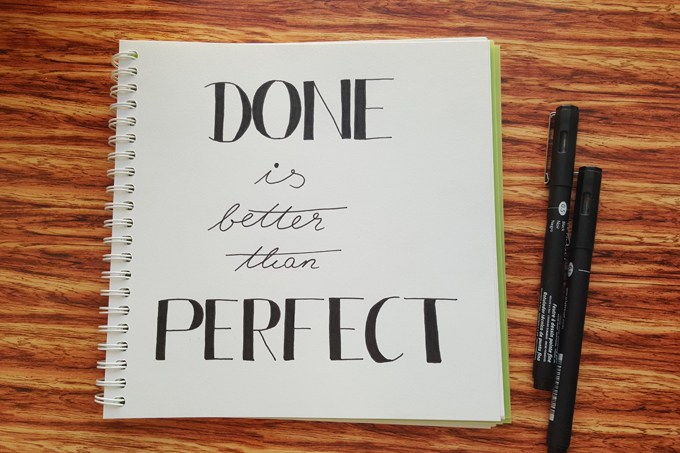 DONE
is
better
than
PERFECT